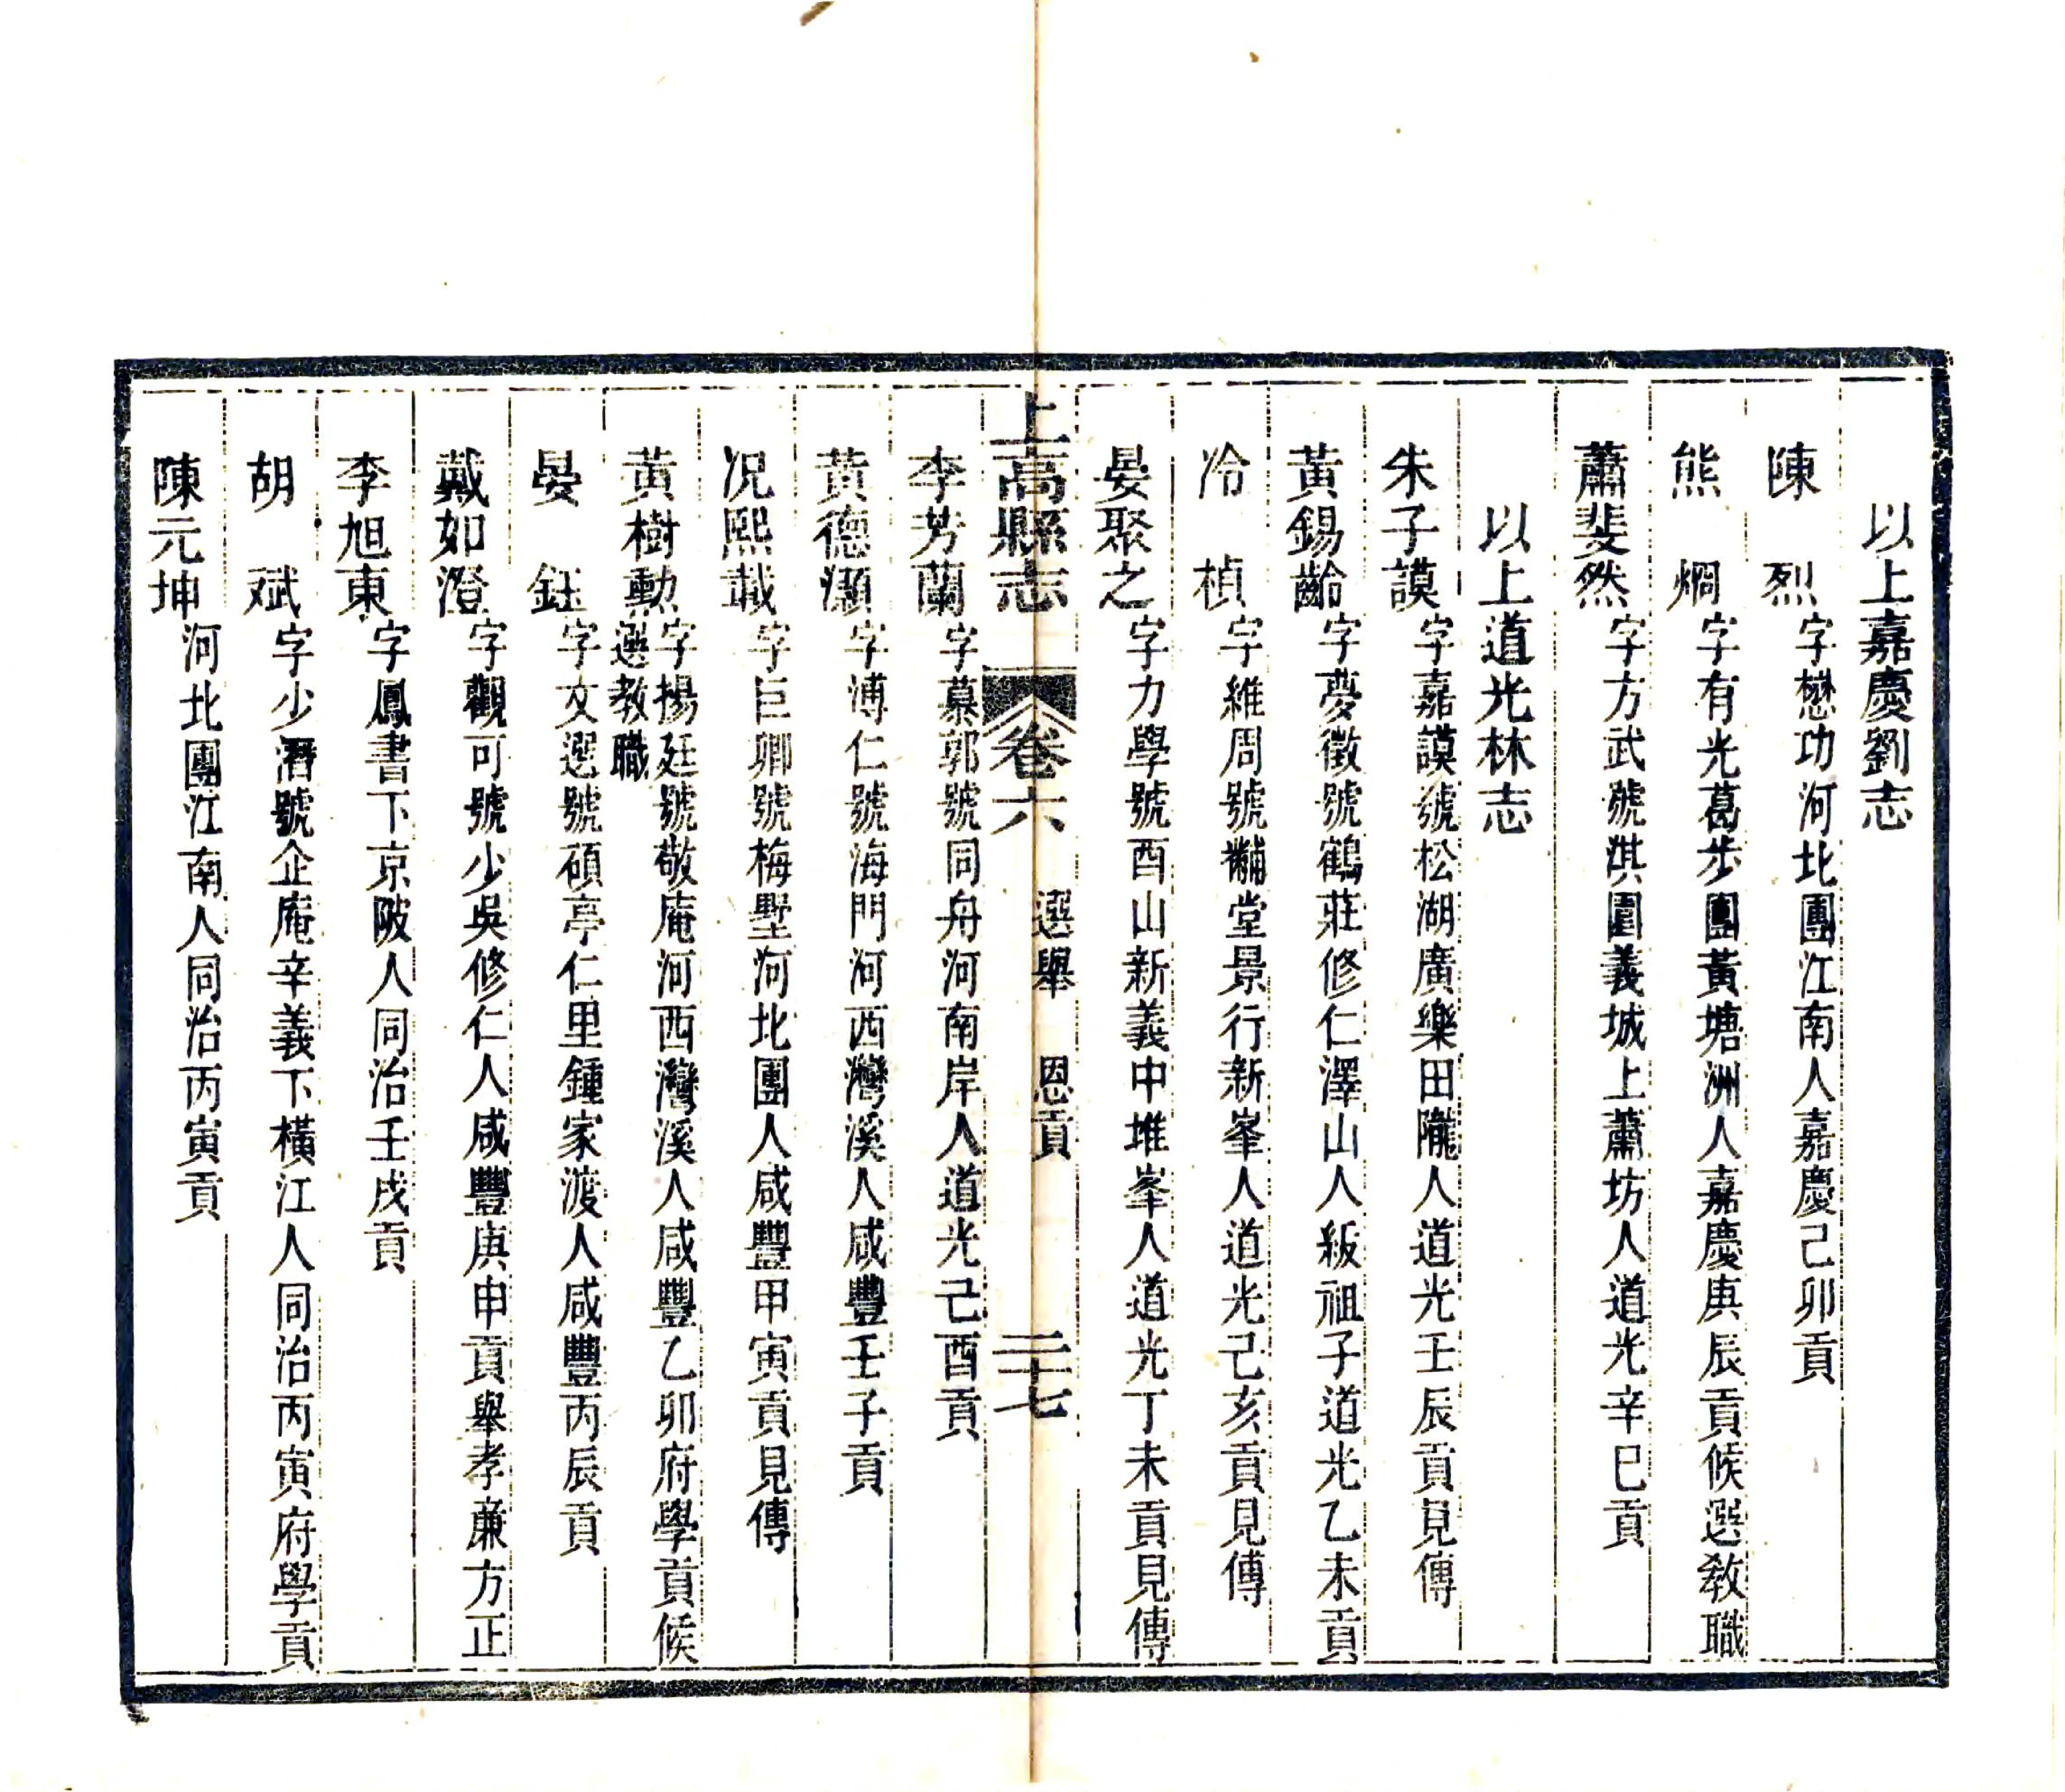 以上嘉慶劉志
陳　烈字懋功河北團江南人嘉慶己卯貢
熊　烱字有光葛步團黃塘洲人嘉慶庚辰貢候選敎職
蕭斐然字方武號淇園義城上蕭坊人道光辛巳貢
以上道光林志
朱子謨字嘉謨號松湖廣樂田隴人道光壬辰貢見傳
黃錫齡字夢徵號鶴莊修仁澤山人緞祖子道光乙未貢
冷　楨字維周號黼堂景行新峯人道光己亥貢見傳
晏聚之字力學號酉山新義中堆峯人道光丁未貢見傳
上高縣志　卷六　選舉　恩貢　二十七
李芳蘭字慕郭號同舟河南岸人道光己酉貢
黃德灝字溥仁號海門河西灣溪人咸豐壬子貢
況熙戠字巨卿號梅墅河北團人咸豐甲寅貢見傳
黃樹勲字揚廷號敬庵河西灣溪人咸豐乙卯府學貢候
選教職
晏　鈺字文選號碩亭仁里鍾家渡人咸豐丙辰貢
戴如澄字觀可號少吳修仁人咸豐庚申貢舉孝亷方正
李旭東字鳳書下京陂人同治壬戌貢
胡　斌字少濳號企庵辛義下橫江人同治丙寅府學貢
陳元坤河北團江南人同治丙寅貢